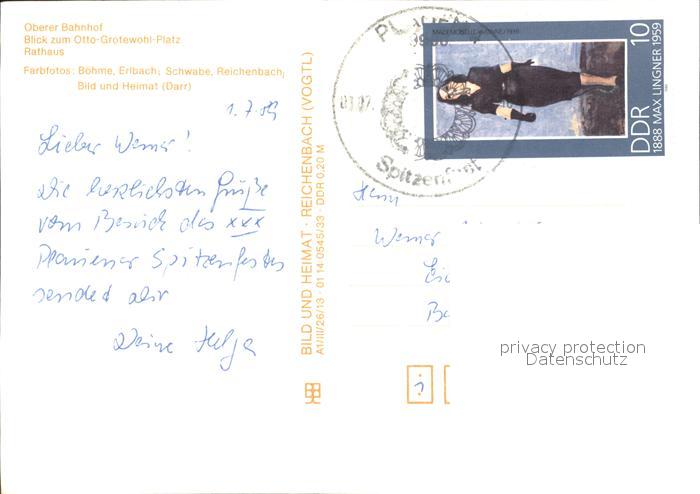 Oberer Bahnhof
Blick zum Otto-Grotewohl-Platz
Rathaus
Farbfotos: Böhme, Erlbach; Schwabe, Reichenbach;
Bild und Heimat (Darr)
1.7.89
Lieber Werner!
Die herzlichsten Grüße
vom Besuch des xxx
Plauener Spitzenfestes
sendet dir
Deine Helga
BILD UND HEIMAT · REICHENBACH (VOGTL)
A1/III/26/13 · 01 14 0545/33 · DDR 0,20 M
PLAUEN
Spitzenfest
DDR 10
1888 MAX LINGNER 1959
Herrn
Werner
privacy protection
Datenschutz